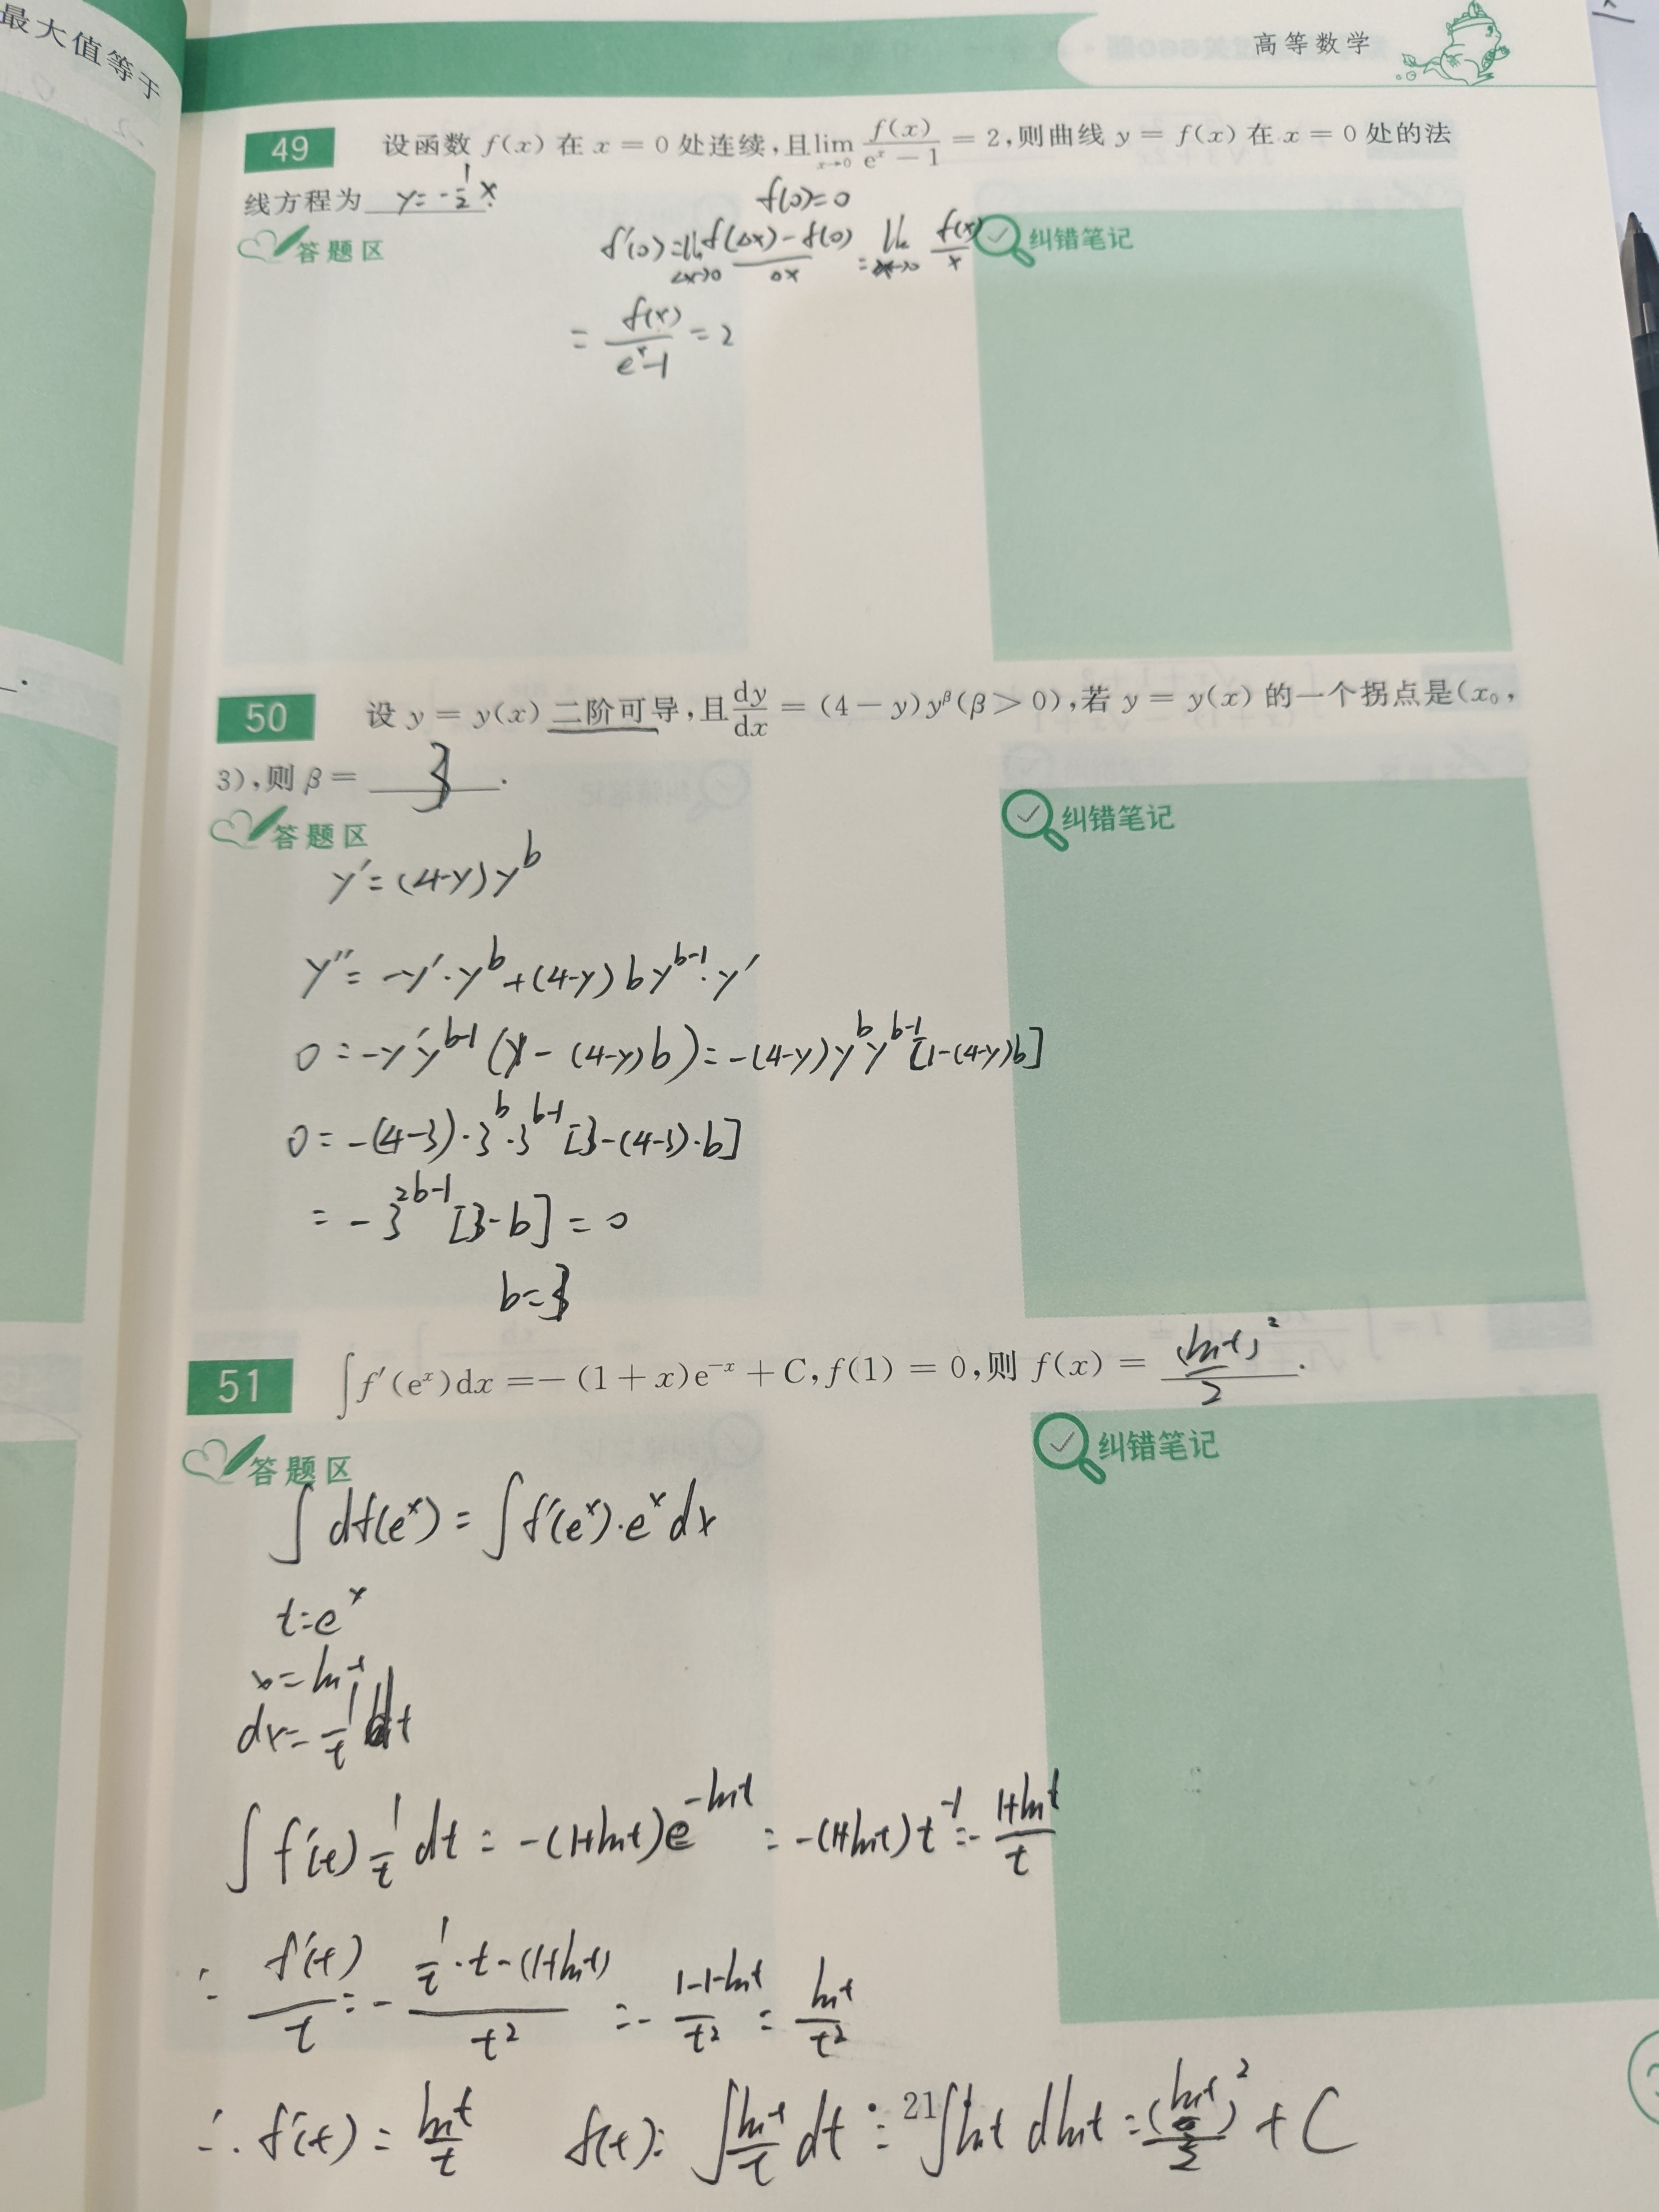 最大值等于
高等数学
49 设函数 f(x) 在 x = 0 处连续,且 lim_{x→0} f(x)/(e^x − 1) = 2,则曲线 y = f(x) 在 x = 0 处的法
线方程为 y = -1/2 x.
答题区
纠错笔记
f(0)=0
f'(0)=lim_{Δx→0} (f(Δx)-f(0))/Δx = lim_{x→0} f(x)/x
= f(x)/(e^x-1) = 2
50 设 y = y(x) 二阶可导,且 dy/dx = (4 − y)y^β (β > 0),若 y = y(x) 的一个拐点是(x₀,
3),则 β = 3 .
答题区
纠错笔记
y' = (4-y)y^b
y'' = -y'·y^b + (4-y)by^{b-1}·y'
0 = -y'y^{b-1}(y - (4-y)b) = -(4-y)y^b y^{b-1}[1-(4-y)b]
0 = -(4-3)·3^b·3^{b-1}[3-(4-3)·b]
= -3^{2b-1}[3-b] = 0
b=3
51 ∫f'(e^x)dx = −(1 + x)e^{−x} + C, f(1) = 0,则 f(x) = (lnt)²/2 .
答题区
纠错笔记
∫df(e^x) = ∫f'(e^x)·e^x dx
t=e^x
x=lnt
dx=1/t dt
∫f'(t) 1/t dt = -(1+lnt)e^{-lnt} = -(1+lnt)t^{-1} = -(1+lnt)/t
∴ f'(t)/t = -(1/t·t-(1+lnt))/t² = -(1-1-lnt)/t² = lnt/t²
∴ f'(t) = lnt/t f(t) = ∫lnt/t dt = ∫lnt dlnt = (lnt)²/2 + C
21